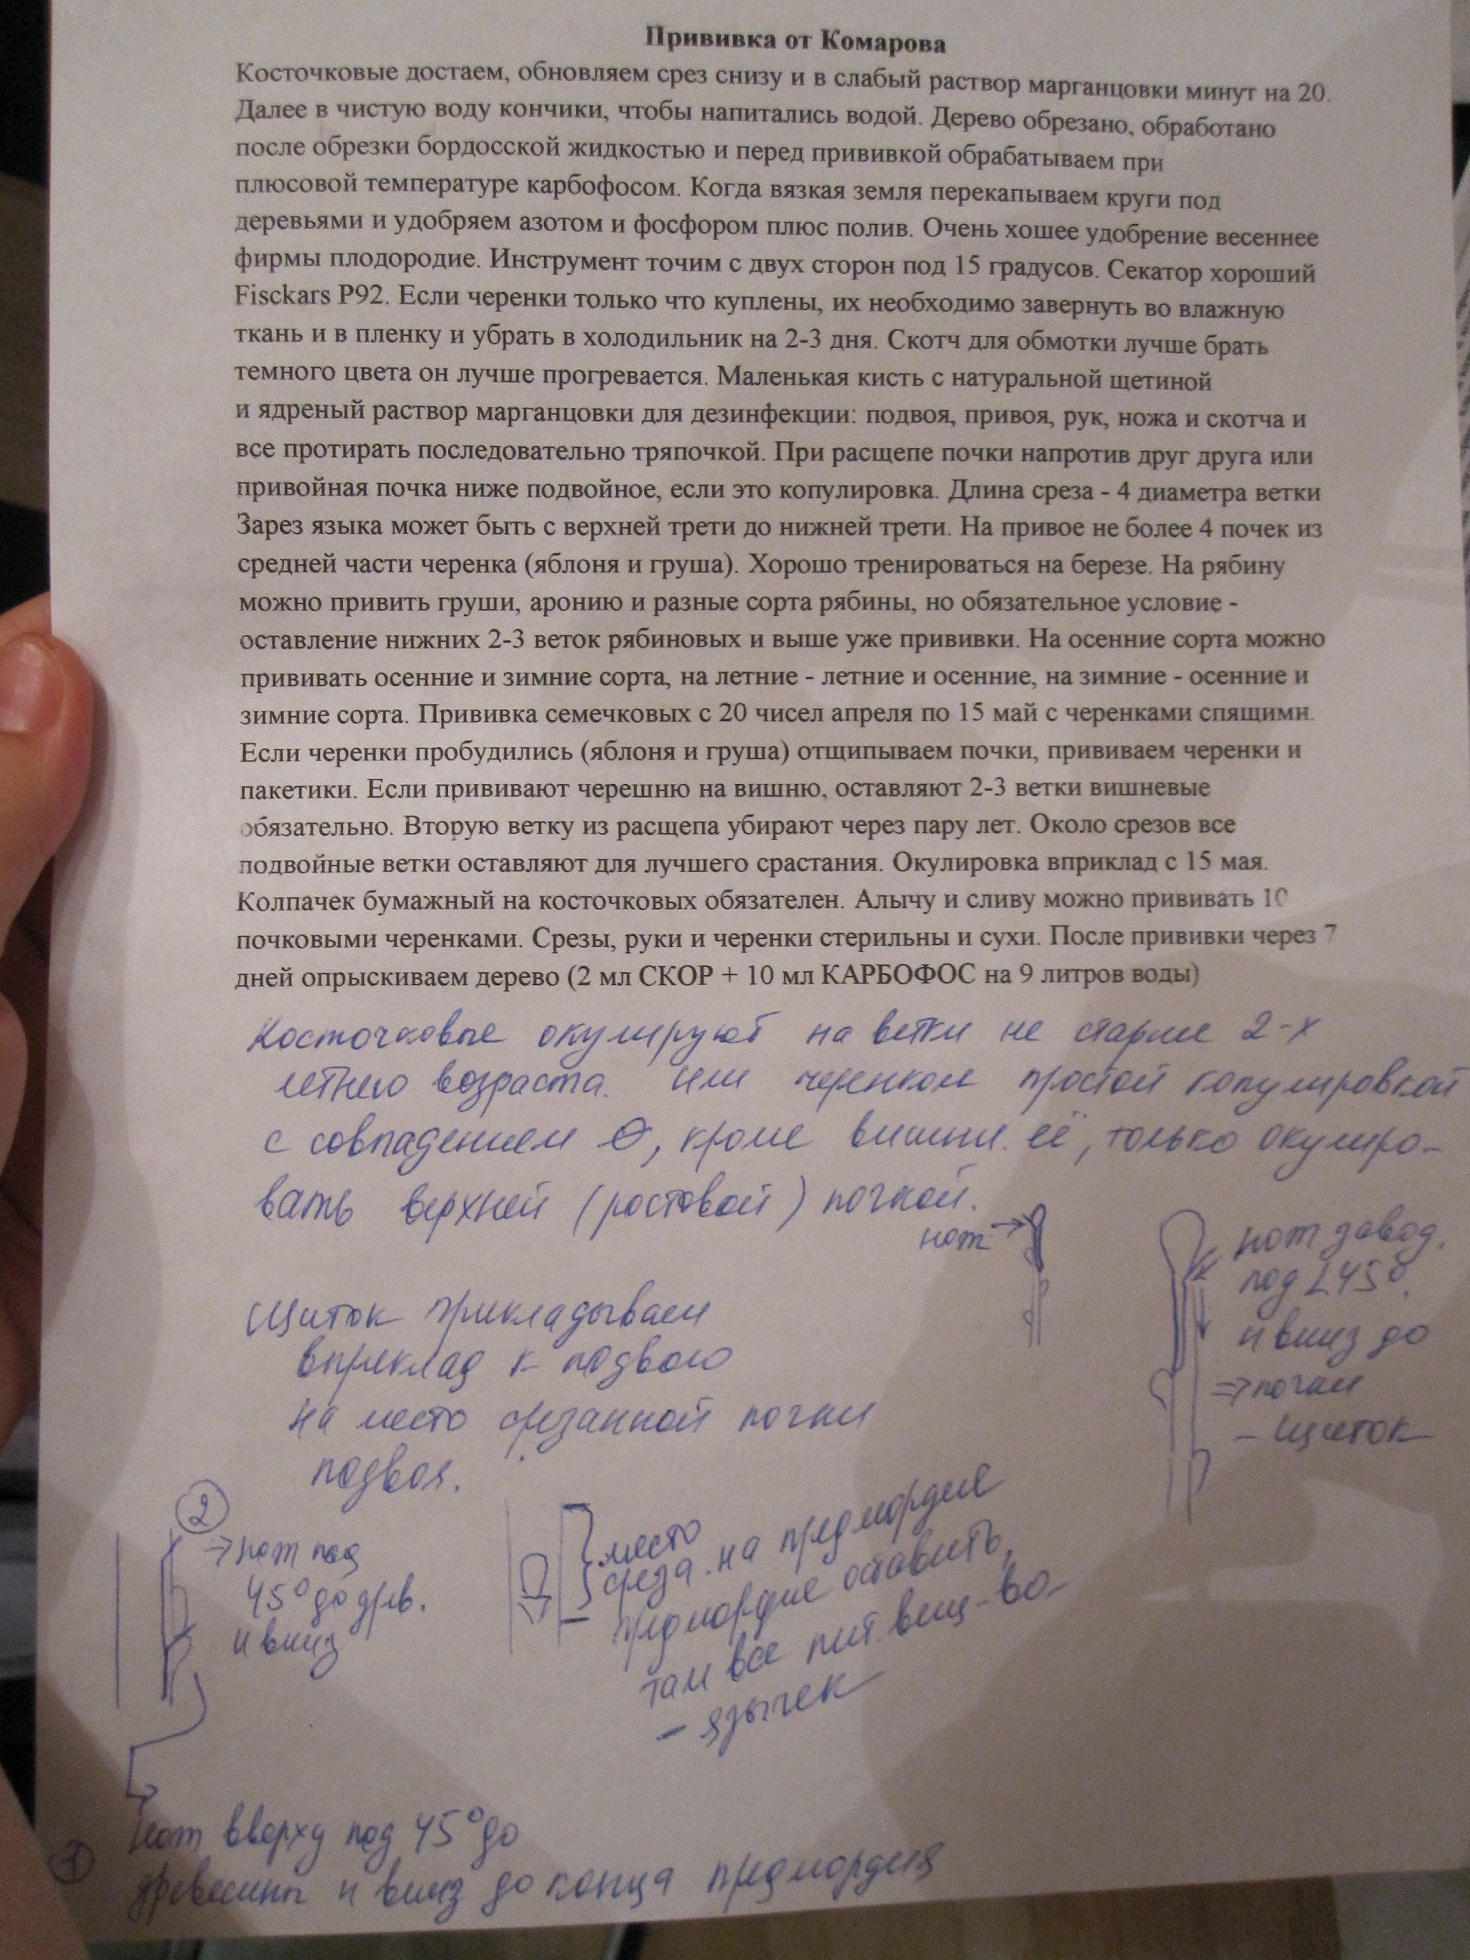 Прививка от Комарова
Косточковые достаем, обновляем срез снизу и в слабый раствор марганцовки минут на 20.
Далее в чистую воду кончики, чтобы напитались водой. Дерево обрезано, обработано
после обрезки бордосской жидкостью и перед прививкой обрабатываем при
плюсовой температуре карбофосом. Когда вязкая земля перекапываем круги под
деревьями и удобряем азотом и фосфором плюс полив. Очень хошее удобрение весеннее
фирмы плодородие. Инструмент точим с двух сторон под 15 градусов. Секатор хороший
Fisckars P92. Если черенки только что куплены, их необходимо завернуть во влажную
ткань и в пленку и убрать в холодильник на 2-3 дня. Скотч для обмотки лучше брать
темного цвета он лучше прогревается. Маленькая кисть с натуральной щетиной
и ядреный раствор марганцовки для дезинфекции: подвоя, привоя, рук, ножа и скотча и
все протирать последовательно тряпочкой. При расщепе почки напротив друг друга или
привойная почка ниже подвойное, если это копулировка. Длина среза - 4 диаметра ветки
Зарез языка может быть с верхней трети до нижней трети. На привое не более 4 почек из
средней части черенка (яблоня и груша). Хорошо тренироваться на березе. На рябину
можно привить груши, аронию и разные сорта рябины, но обязательное условие -
оставление нижних 2-3 веток рябиновых и выше уже прививки. На осенние сорта можно
прививать осенние и зимние сорта, на летние - летние и осенние, на зимние - осенние и
зимние сорта. Прививка семечковых с 20 чисел апреля по 15 май с черенками спящими.
Если черенки пробудились (яблоня и груша) отщипываем почки, прививаем черенки и
пакетики. Если прививают черешню на вишню, оставляют 2-3 ветки вишневые
обязательно. Вторую ветку из расщепа убирают через пару лет. Около срезов все
подвойные ветки оставляют для лучшего срастания. Окулировка вприклад с 15 мая.
Колпачек бумажный на косточковых обязателен. Алычу и сливу можно прививать 10
почковыми черенками. Срезы, руки и черенки стерильны и сухи. После прививки через 7
дней опрыскиваем дерево (2 мл СКОР + 10 мл КАРБОФОС на 9 литров воды)
Косточковые окулируют на ветки не старше 2-х
летнего возраста. Или черенком простой копулировкой
с совпадением ∅, кроме вишни. её, только окулиро-
вать верхней (ростовой) почкой.
нож
нож завод.
под ∠45°.
и вниз до
⇒ почки
- щиток
Щиток прикладываем
вприклад к подвою
на место срезанной почки
подвоя.
2
→ нож под
45° до древ.
и вниз
место
среза. на предмордие
- предмордие оставить,
там все пит. вещ-ва
- язычек
1
нож вверху под 45° до
древесины и вниз до конца предмордия